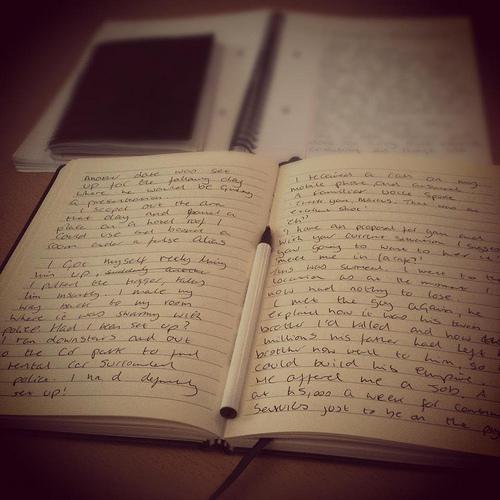 Another date was set
up for the following day
where he would be giving
a presentation.
I scoped out the area
that day and found a
place on a hotel roof I
could use and booked a
room under a false alias
I got myself ready lining
him up,
I pulled the trigger, taking
him instantly. I made my
way back to my room
where it was swarming with
police. Had I been set up?
I ran downstairs and out
to the car park to find
rental car surrounded
police. I had definitely
set up!
I received a call on my
mobile phone and answered
A familiar voice spoke
you, Marcus. That was
excellent shot.
"I have an proposal for you
With your current situation I suggest
you going to want to hear it
meet me in
This was surreal. I went to
location as at the moment
now had nothing to lose.
I met the guy again, he
explained how it was his twin
brother I'd killed and how the
millions his father had left
brother now went to him so
could build his empire.
He offered me a job. A
at £5,000 a week for
services just to be on the